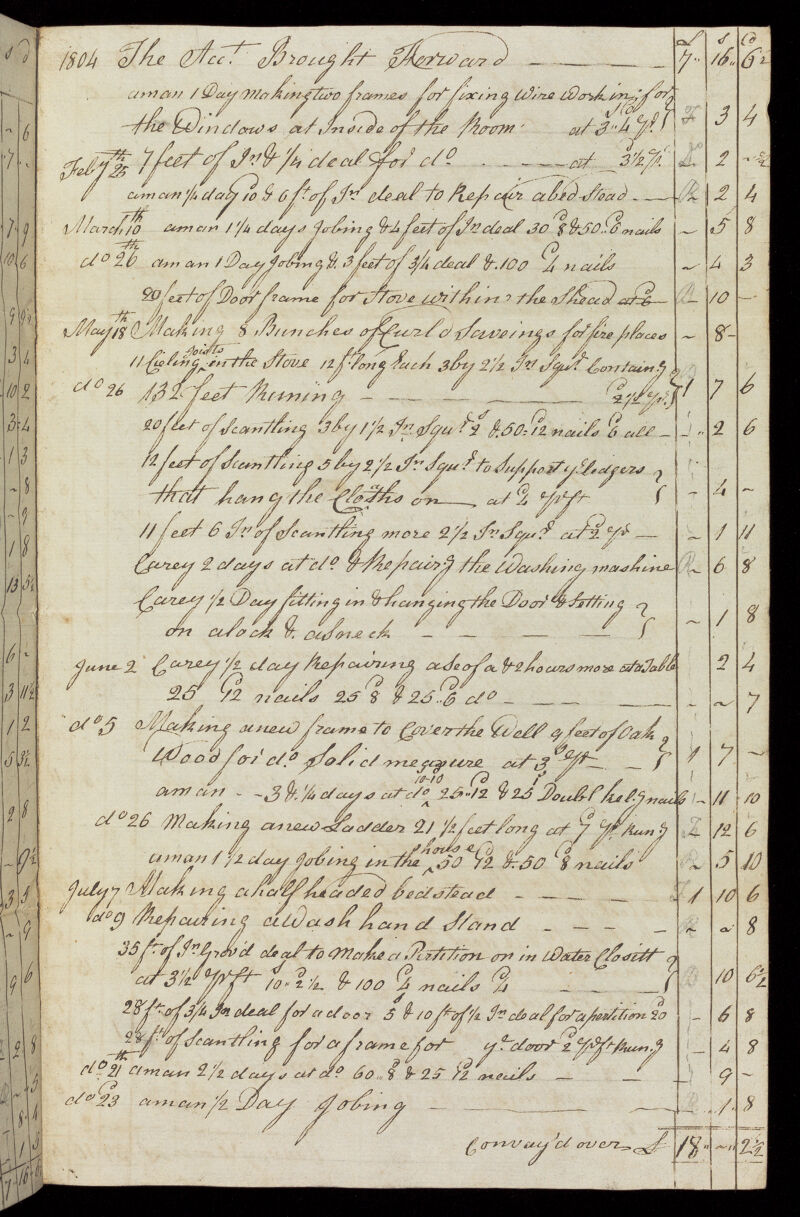 £ s d
1804 The Acct. Brought Forward 7 16 6½
aman 1 Day making two frames for fixing wire work in; for
the Windows at Inside of the Room at 3s..4d pr. 3 4
Feby 25th 7 feet of In & ¼ deal for do at 3½ pr. 2 ~ ½
aman ¼ day 10d & 6 ft of In deal to Repair abed Stoad R 2 4
March 10th aman 1¼ days Jobing & 4 feet of In deal 30 8d & 50..6d nails ~ 5 8
do 26th aman 1 Day Jobing & 3 feet of ¾ deal & 100 4d nails ~ 4 3
20 feet of Door frame for Stove within the Shead at 6d R 10 —
May 18th Making 8 Bunches of Curld Saveings for fire places ~ 8 —
11 Cieling Joists in the Stove 12 ft long Each 3 by 2½ In Squr. Containg
do 26 132 feet Runing 2½d pr. 1 7 6
20 feet of Scantling 3 by 1½ In Squr. 2s & 50 = 12d nails 6d all ~ 2 6
12 feet of Scantling 5 by 2½ In Squr. to Support ye ledgers
that hang the Cloaths on at 4d pr ft ~ 4 ~
11 feet 6 In of Scantling more 2½ In Squr. at 2d pr ~ 1 11
Carey 2 days at do & Repairg the Washing mashine R ~ 6 8
Carey ½ Day fitting in & hanging the Door & Setting
on alock & asneck ~ 1 8
June 2 Carey ½ day Repairing aseofa & 2 hours more at a Table 2 4
25 12d nails 25 8d & 25..6d do ~ ~ 7
do 5 Making anew frame to Cover the Well 9 feet of Oak
Wood for do Solid measure at 3s pr ft 1 7 ~
aman - - 3 & ¼ days at do 10-10 25..12d & 25 Doubl nails ~ 11 10
do 26 Making anew Ladder 21½ feet long at 7d pr Rung 12 6
aman 1½ day Jobing in the house 50 12d & 50 8d nails R ~ 5 10
July 7 Making a half headed bedstead 1 10 6
do 9 Repairing aWash hand Stand R ~ ~ 8
35 ft. of In Grov'd deal to make a Pertition on in Water Closítt
at 3½ pr ft 10s..2½d & 100 4d nails 4d 10 6½
28 ft. of ¾ In deal for a door 5s & 10 ft of ½ In deal for a pertition 20d ~ 6 8
28 ft. of Scantling for a frame for ye door 2d pr ft Rung ~ 4 8
do 21th aman 2½ days at do 60..8d & 25 12d nails 9 —
do 23d aman ½ Day Jobing R 1 8
Convay'd over £ 18 ~ 2½